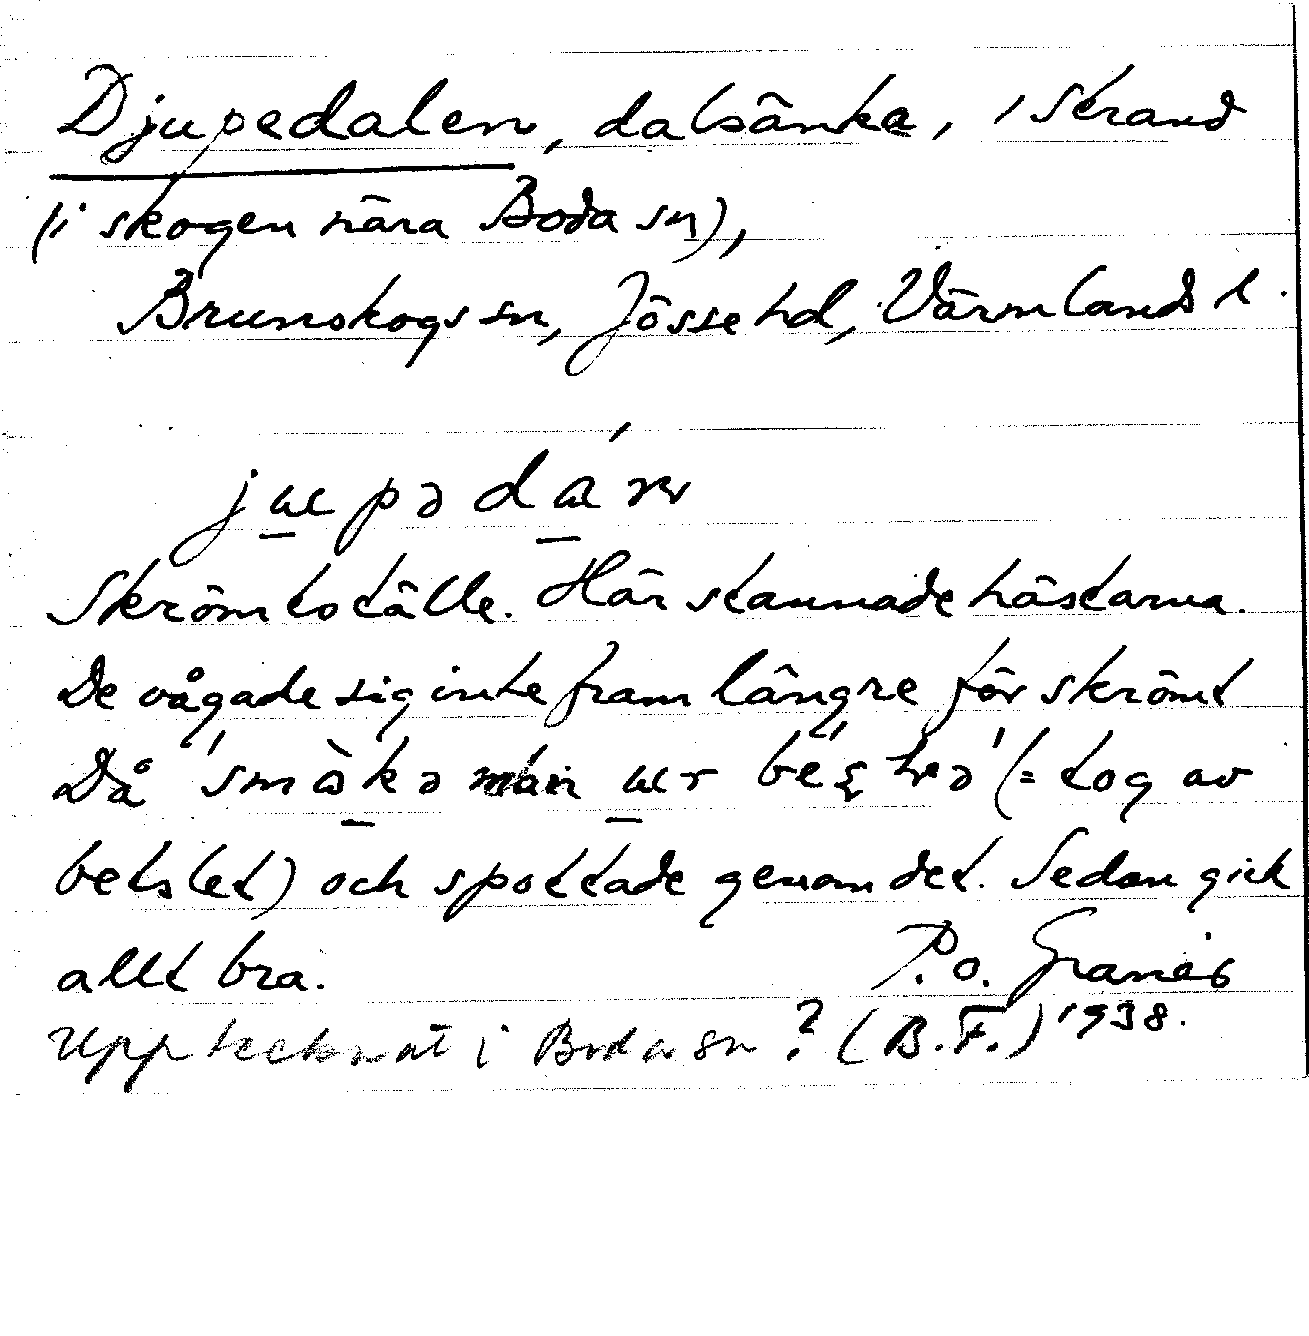 Djupedalen, dalsänka, i Strand
(i skogen nära Boda sn),
Brunskogs sn, Jösse hd, Värmlands l.
Skrömtställe. Här stannade hästarna.
De vågade sig inte fram längre för skrömt
Då man (= tog av
betslet) och spottade genom det. Sedan gick
allt bra. P.O. Granéus
Upptecknat i Boda sn? (B.F.) 1938.